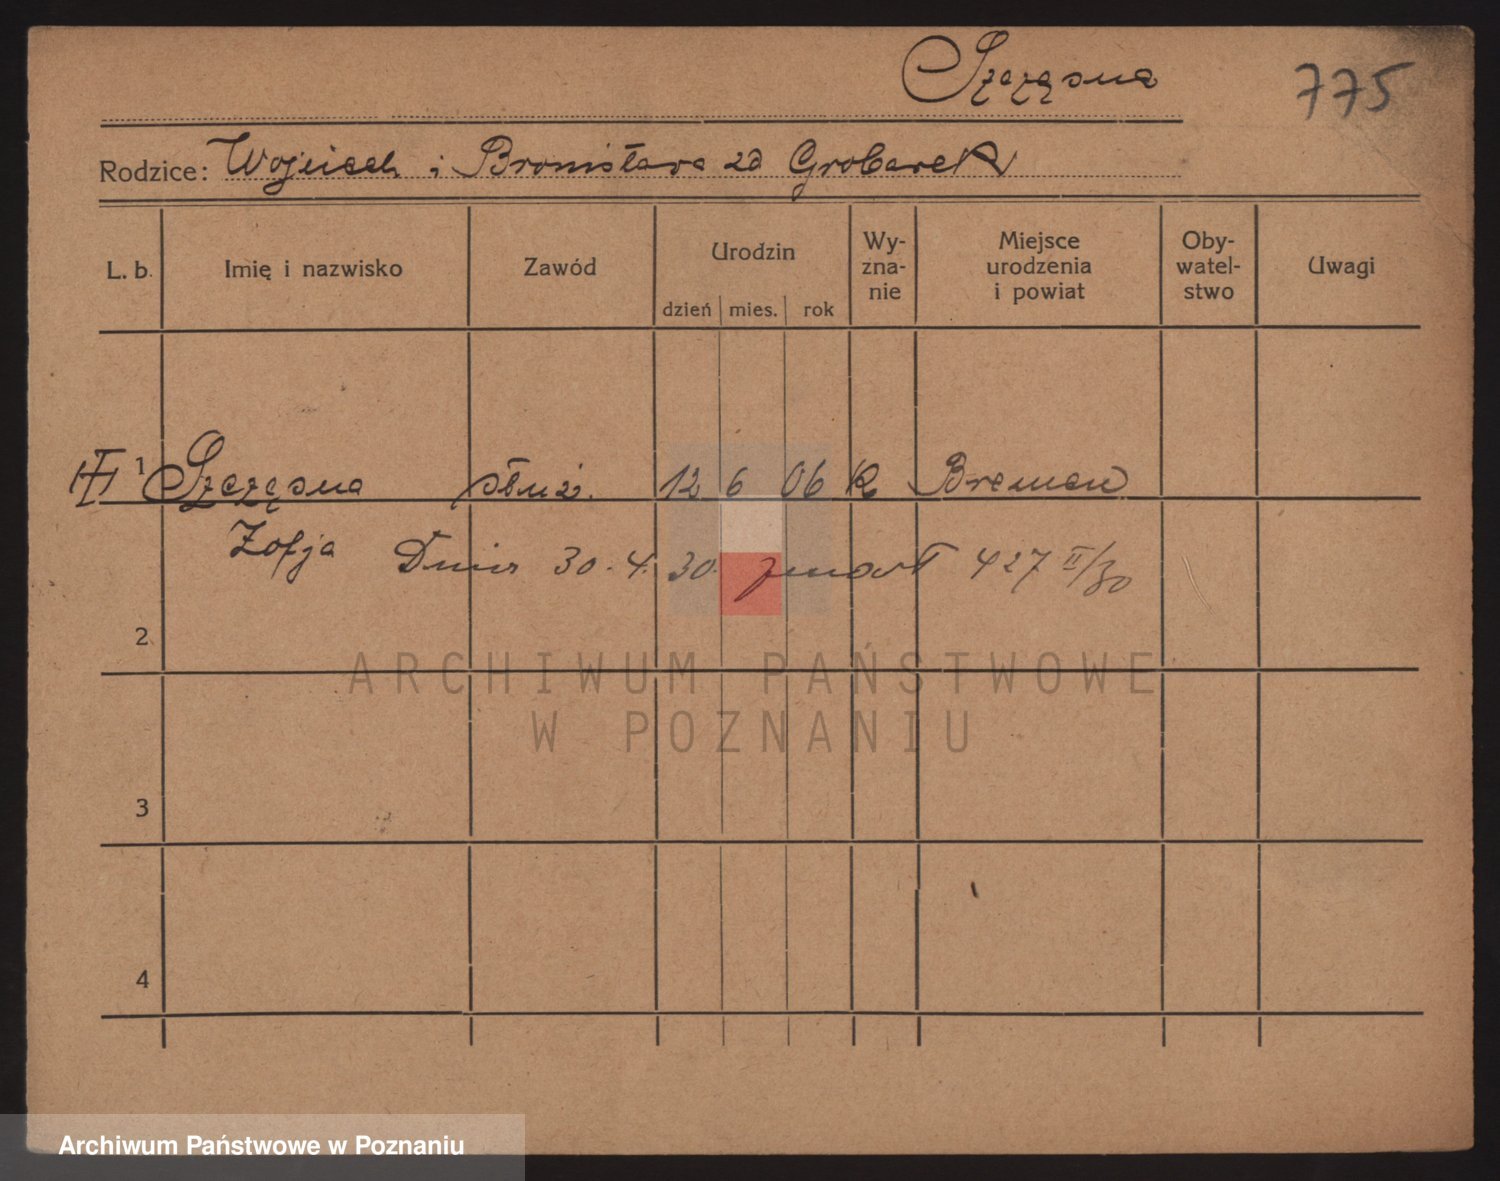 Szczęsna
775
Rodzice: Wojciech i Bronisława zd Grobarek
L. b. Imię i nazwisko Zawód Urodzin dzień mies. rok Wy-zna-nie Miejsce urodzenia i powiat Oby-watel-stwo Uwagi
1 Szczęsna służ. 12 6 06 R Bremen
Zofja Dnia 30. 4. 30. zmarł 427 II/30
2
ARCHIWUM PAŃSTWOWE
W POZNANIU
3
4
Archiwum Państwowe w Poznaniu